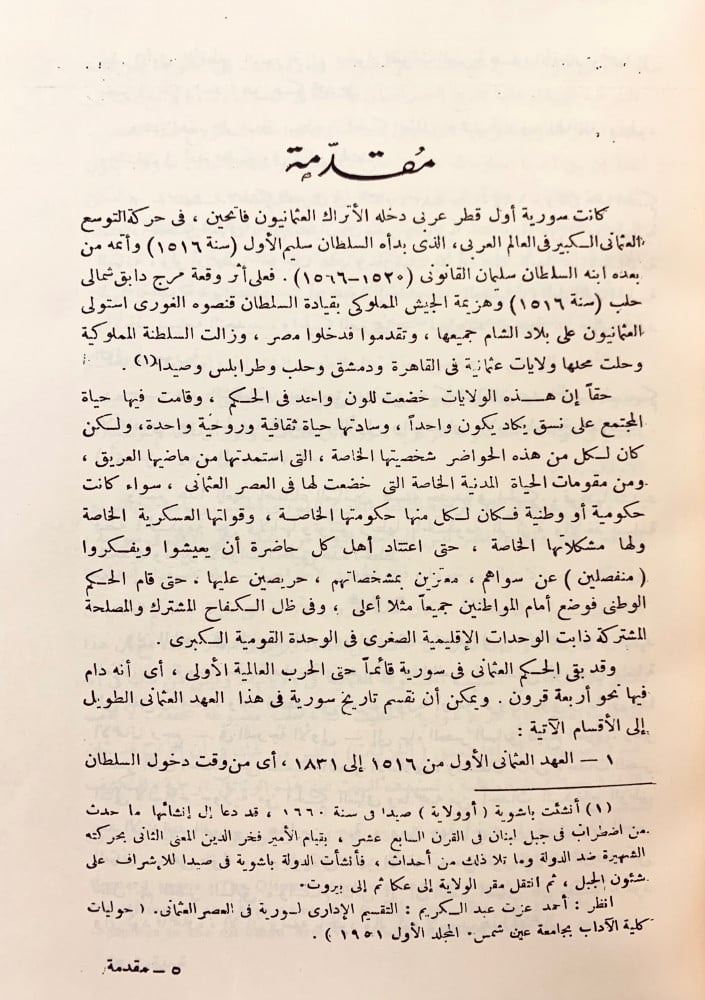 مُقدّمة
كانت سورية أول قطر عربى دخله الأتراك العثمانيون فاتحين ، فى حركة التوسع
العثمانى الكبير فى العالم العربى، الذى بدأه السلطان سليم الأول (سنة ١٥١٦) وأتمه من
بعده ابنه السلطان سليمان القانونى (١٥٢٠–١٥٦٦) . فعلى أثر وقعة مرج دابق شمالى
حلب (سنة ١٥١٦) وهزيمة الجيش المملوكى بقيادة السلطان قنصوه الغورى استولى
العثمانيون على بلاد الشام جميعها ، وتقدموا فدخلوا مصر ، وزالت السلطنة المملوكية
وحلت محلها ولايات عثمانية فى القاهرة ودمشق وحلب وطرابلس وصيدا(١) .
حقاً إن هذه الولايات خضعت للون واحد فى الحكم ، وقامت فيها حياة
المجتمع على نسق يكاد يكون واحداً ، وسادتها حياة ثقافية وروحية واحدة، ولكن
كان لكل من هذه الحواضر شخصيتها الخاصة ، التى استمدتها من ماضيها العريق ،
ومن مقومات الحياة المدنية الخاصة التى خضعت لها فى العصر العثمانى ، سواء كانت
حكومية أو وطنية فكان لكل منها حكومتها الخاصة ، وقواتها العسكرية الخاصة
ولها مشكلاتها الخاصة ، حتى اعتاد أهل كل حاضرة أن يعيشوا ويفكروا
( منفصلين ) عن سواهم ، معتزين بمشخصاتهم ، حريصين عليها . حتى قام الحكم
الوطنى فوضع أمام المواطنين جميعاً مثلا أعلى ، وفى ظل الكفاح المشترك والمصلحة
المشتركة ذابت الوحدات الإقليمية الصغرى فى الوحدة القومية الكبرى .
وقد بقى الحكم العثمانى فى سورية قائماً حتى الحرب العالمية الأولى ، أى أنه دام
فيها نحو أربعة قرون . ويمكن أن نقسم تاريخ سورية فى هذا العهد العثمانى الطويل
إلى الأقسام الآتية :
١ — العهد العثمانى الأول من ١٥١٦ إلى ١٨٣١ ، أى من وقت دخول السلطان
(١) أنشئت باشوية ( أوولاية ) صيدا فى سنة ١٦٦٠ ، قد دعا إلى إنشائها ما حدث
من اضطراب فى جبل لبنان فى القرن السابع عشر ، بقيام الأمير فخر الدين المعنى الثانى بحركته
الشهيرة ضد الدولة وما تلا ذلك من أحداث ، فأنشأت الدولة باشوية فى صيدا للإشراف على
شئون الجبل ، ثم انتقل مقر الولاية إلى عكا ثم إلى بيروت.
انظر : أحمد عزت عبد الكريم : التقسيم الإدارى لسورية فى العصر العثمانى. ( حوليات
كلية الآداب بجامعة عين شمس. المجلد الأول ١٩٥١ ) .
٥ — مقدمة